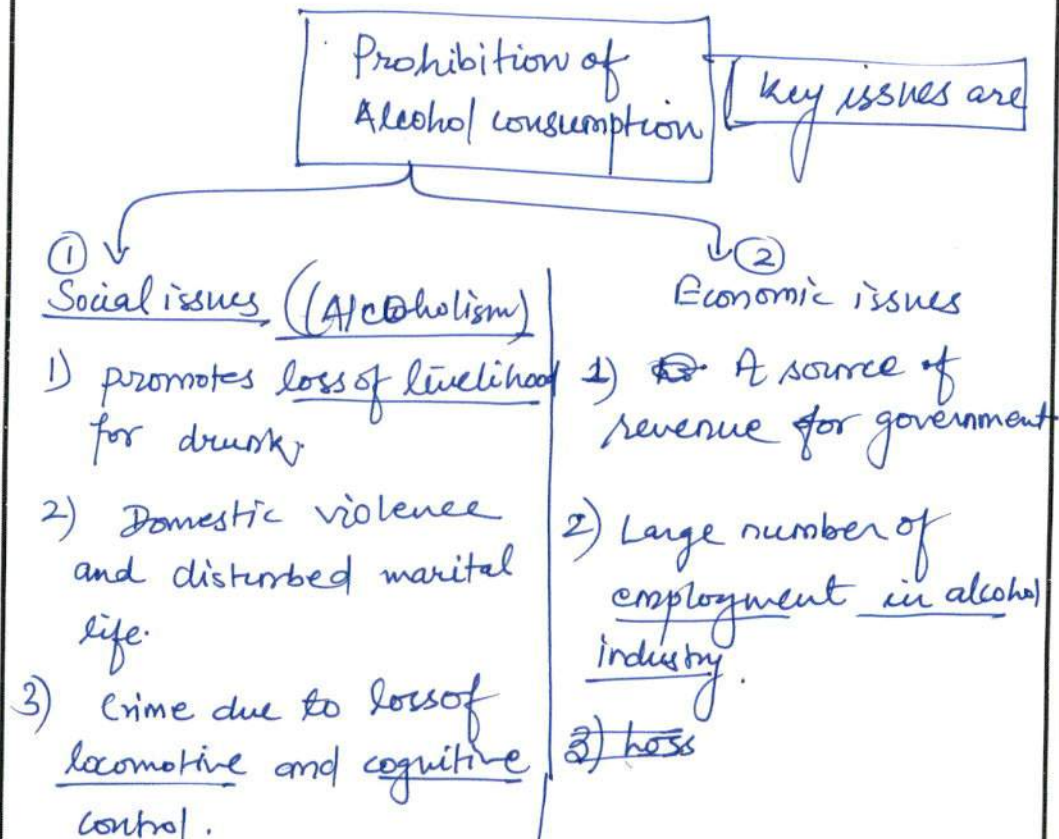 Prohibition of
Alcohol consumption
key issues are
①
Social issues ((Alcoholism)
1) promotes loss of livelihood
for drunk.
2) Domestic violence
and distrubed marital
life.
3) Crime due to loss of
locomotive and cognitive
control.
②
Economic issues
1) A source of
revenue for government
2) Large number of
employment in alcohol
industry.
3) Loss